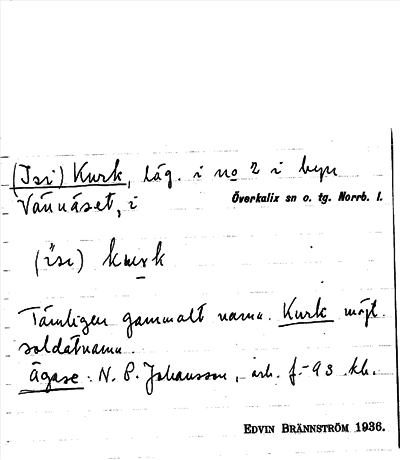 (Isi) Kurk, läg. i no 2 i byn
Vännäset, i Överkalix sn o. tg. Norrb. l.
(isi) kurk
Tämligen gammalt namn. Kurk möjl.
soldatnamn.
Ägare: N. P. Johansson, arb. f. 93 kh.
EDVIN BRÄNNSTRÖM 1936.